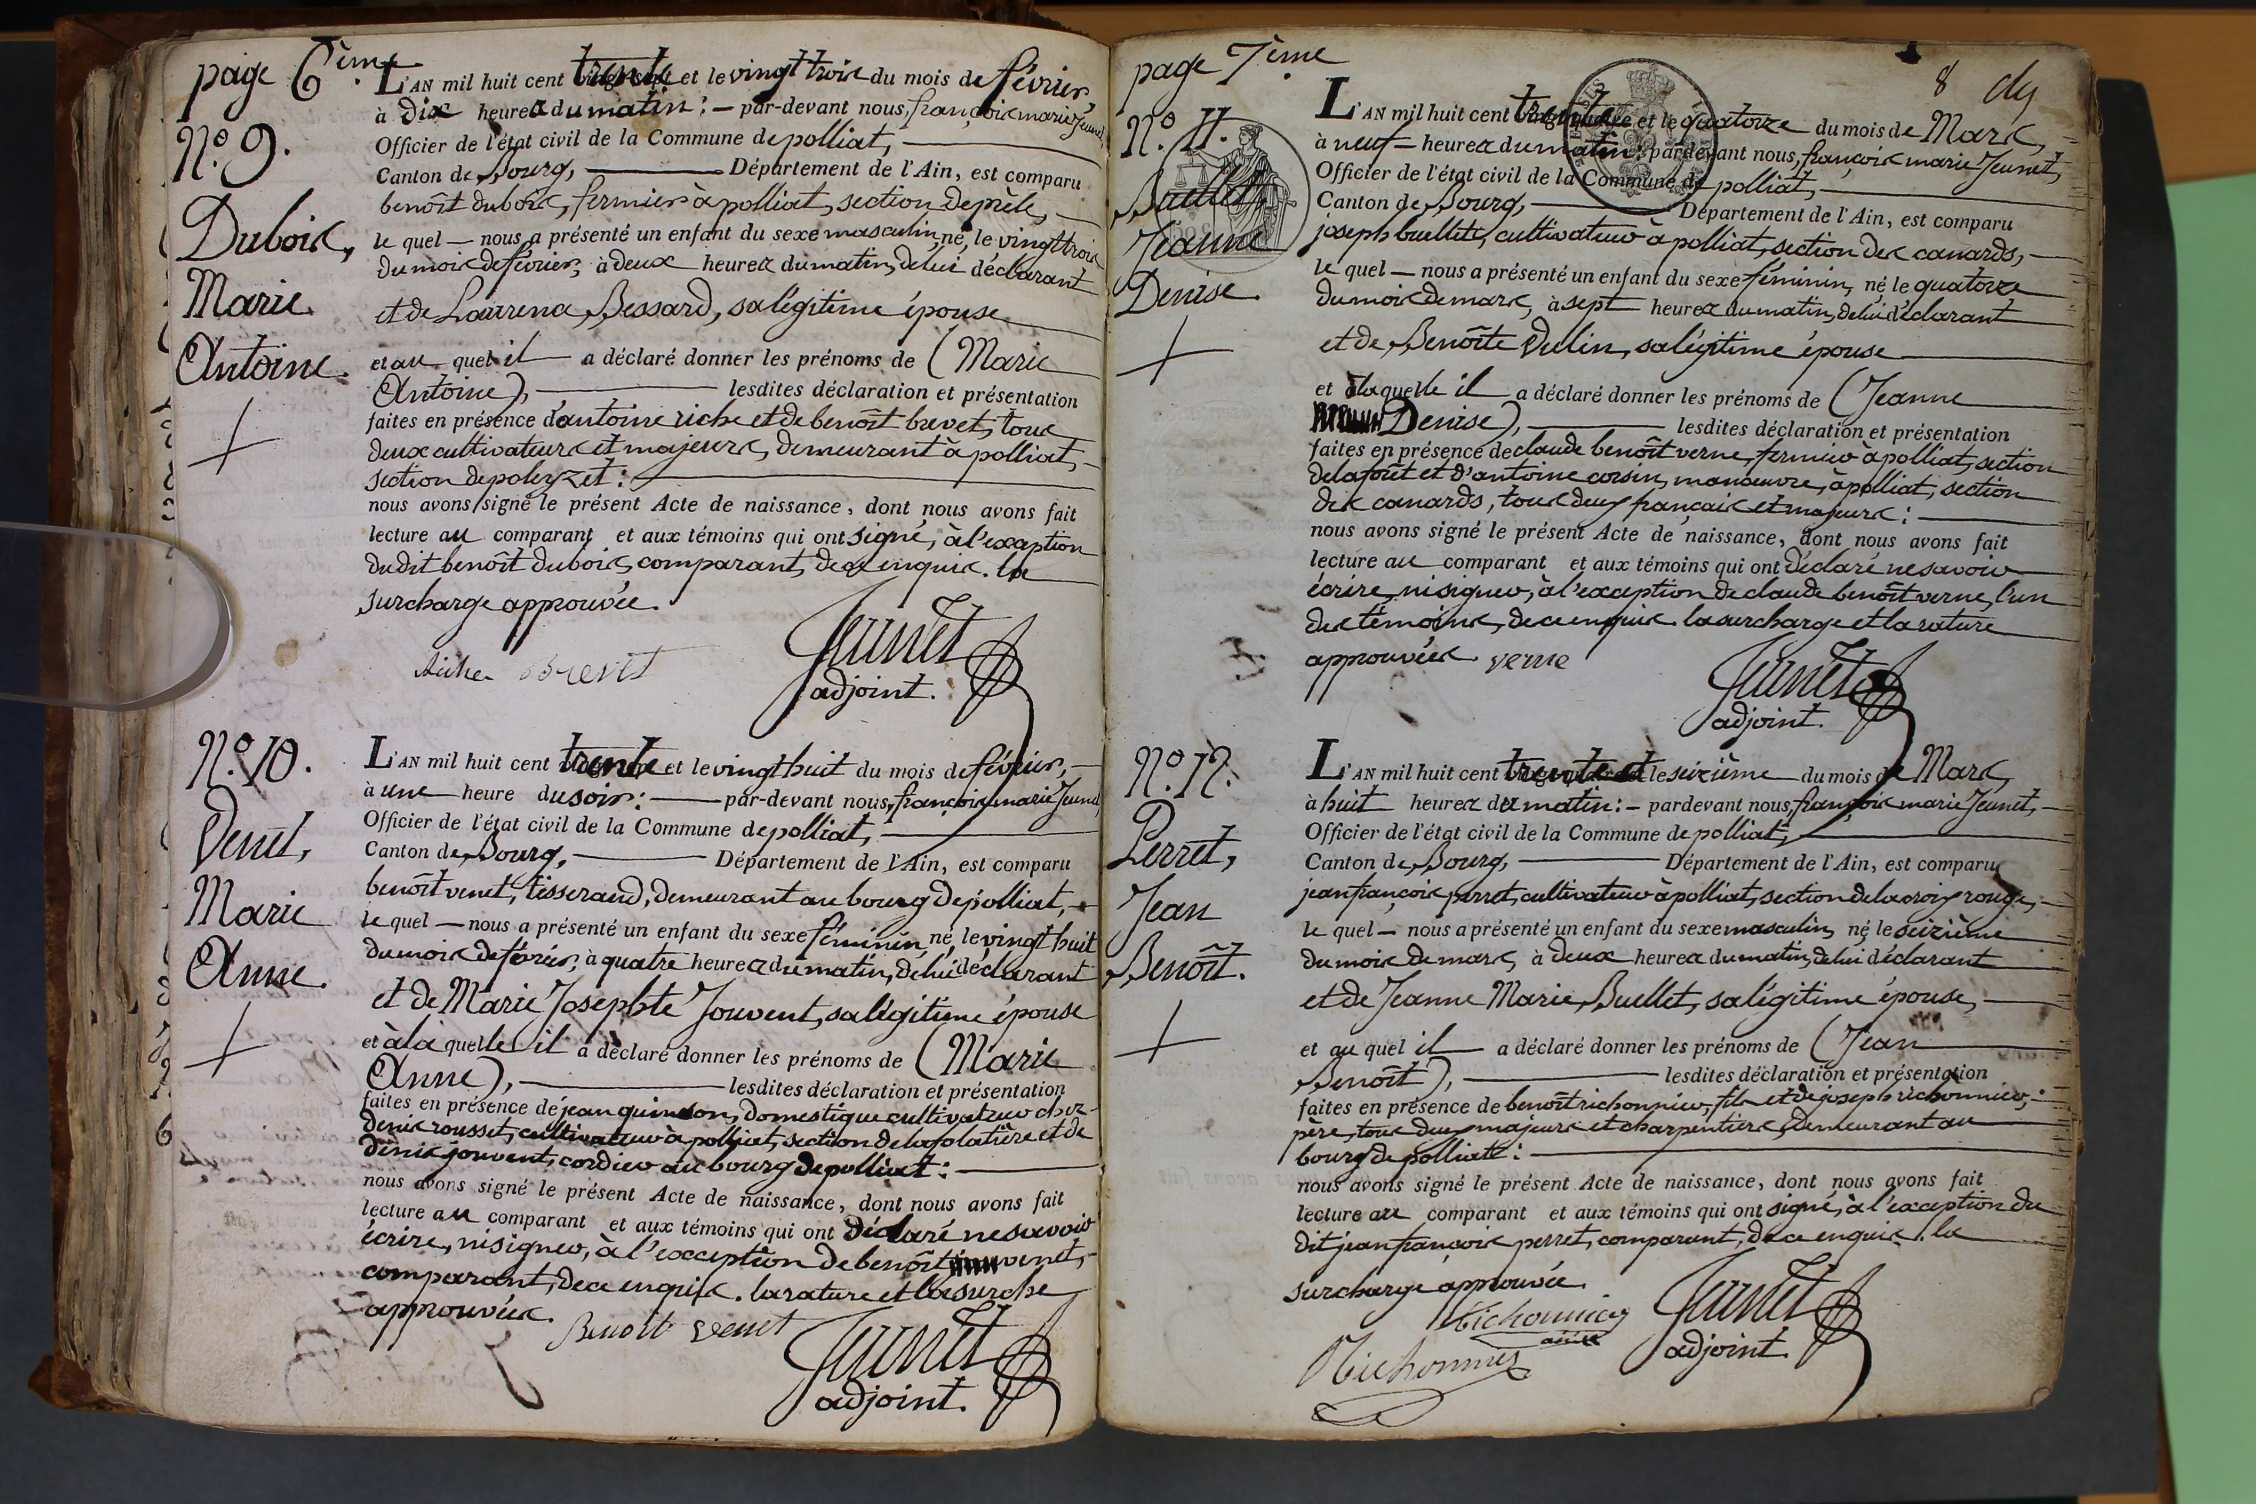 page 6ème.
N.º 9.
Dubois,
Marie
Antoine.
L'AN mil huit cent trente et le vingt trois du mois de février
à dix heures du matin : — par-devant nous, françois marie Jeunet
Officier de l'état civil de la Commune de polliat,
Canton de Bourg, Département de l'Ain, est comparu
benoît dubois, fermier à polliat, section de prèle,
le quel — nous a présenté un enfant du sexe masculin, né, le vingt trois
du mois de février, à deux heures du matin, de lui déclarant
et de Laurence Bessard, sa légitime épouse
et au quel il a déclaré donner les prénoms de (Marie
Antoine), lesdites déclaration et présentation
faites en présence d'antoine riche et de benoît brevet, tous
deux cultivateurs et majeurs, demeurant à polliat,
section de poleyzet :
nous avons signé le présent Acte de naissance, dont nous avons fait
lecture au comparant et aux témoins qui ont signé, à l'exception
du dit benoît dubois, comparant, de ce enquis. la
surcharge approuvée.
Riche Brevet Jeunet
adjoint.
N.º 10.
Venet,
Marie
Anne.
L'AN mil huit cent trente et le vingt huit du mois de février,
à une heure du soir : — par-devant nous, françois marie Jeunet
Officier de l'état civil de la Commune de polliat,
Canton de Bourg, Département de l'Ain, est comparu
benoît venet, tisserand, demeurant au bourg de polliat,
le quel — nous a présenté un enfant du sexe féminin, né, le vingt huit
du mois de février, à quatre heures du matin, de lui déclarant
et de Marie Josephte Jouvent, sa légitime épouse
et à la quelle il a déclaré donner les prénoms de (Marie
Anne), lesdites déclaration et présentation
faites en présence de jean quinson, domestique cultivateur chez
denis rousset, cultivateur à polliat, section de la folatière et de
denis jouvent, cordier au bourg de polliat :
nous avons signé le présent Acte de naissance, dont nous avons fait
lecture au comparant et aux témoins qui ont déclaré ne savoir
écrire, ni signer, à l'exception de benoît venet,
comparant, de ce enquis. la rature et la surche
approuvées.
Benoit venet Jeunet
adjoint.
page 7ème
8
N.º 11.
Buellet,
Jeanne
Denise.
L'AN mil huit cent trente et le quatorze du mois de Mars,
à neuf = heures du matin : pardevant nous, françois marie Jeunet,
Officier de l'état civil de la Commune de polliat,
Canton de Bourg, Département de l'Ain, est comparu
joseph buellet, cultivateur à polliat, section des canards,
le quel — nous a présenté un enfant du sexe féminin, né le quatorze
du mois de mars, à sept heures du matin, de lui déclarant
et de Benoîte Vulin, sa légitime épouse
et à la quelle il a déclaré donner les prénoms de (Jeanne
Denise), lesdites déclaration et présentation
faites en présence de claude benoît verne, fermier à polliat, section
de la forêt et d'antoine corsin, manœuvre, à polliat, section
des canards, tous deux français et majeurs :
nous avons signé le présent Acte de naissance, dont nous avons fait
lecture au comparant et aux témoins qui ont déclaré ne savoir
écrire, ni signer, à l'exception de claude benoît verne, l'un
des témoins, de ce enquis. la surcharge et la rature
approuvées. verne
Jeunet
adjoint.
N.º 12.
Perret,
Jean
Benoît.
L'AN mil huit cent trente et le seizième du mois de Mars,
à huit heures du matin : — pardevant nous, françois marie Jeunet,
Officier de l'état civil de la Commune de polliat,
Canton de Bourg, Département de l'Ain, est comparu
jean françois perret, cultivateur à polliat, section de la croix rouge,
le quel — nous a présenté un enfant du sexe masculin, né le seizième
du mois de mars, à deux heures du matin, de lui déclarant
et de Jeanne Marie Buellet, sa légitime épouse,
et au quel il a déclaré donner les prénoms de (Jean
Benoît), lesdites déclaration et présentation
faites en présence de benoît richonnier, fils et de joseph richonnier,
père, tous deux majeurs et charpentiers, demeurant au
bourg de polliat :
nous avons signé le présent Acte de naissance, dont nous avons fait
lecture au comparant et aux témoins qui ont signé, à l'exception du
dit jean françois perret, comparant, de ce enquis. la
surcharge approuvée.
Richonnier Jeunet
adjoint.
Richonnier